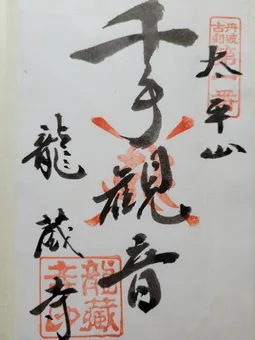 丹波
古刹
第一番
太平山
千手観音
龍蔵寺
龍蔵
寺印